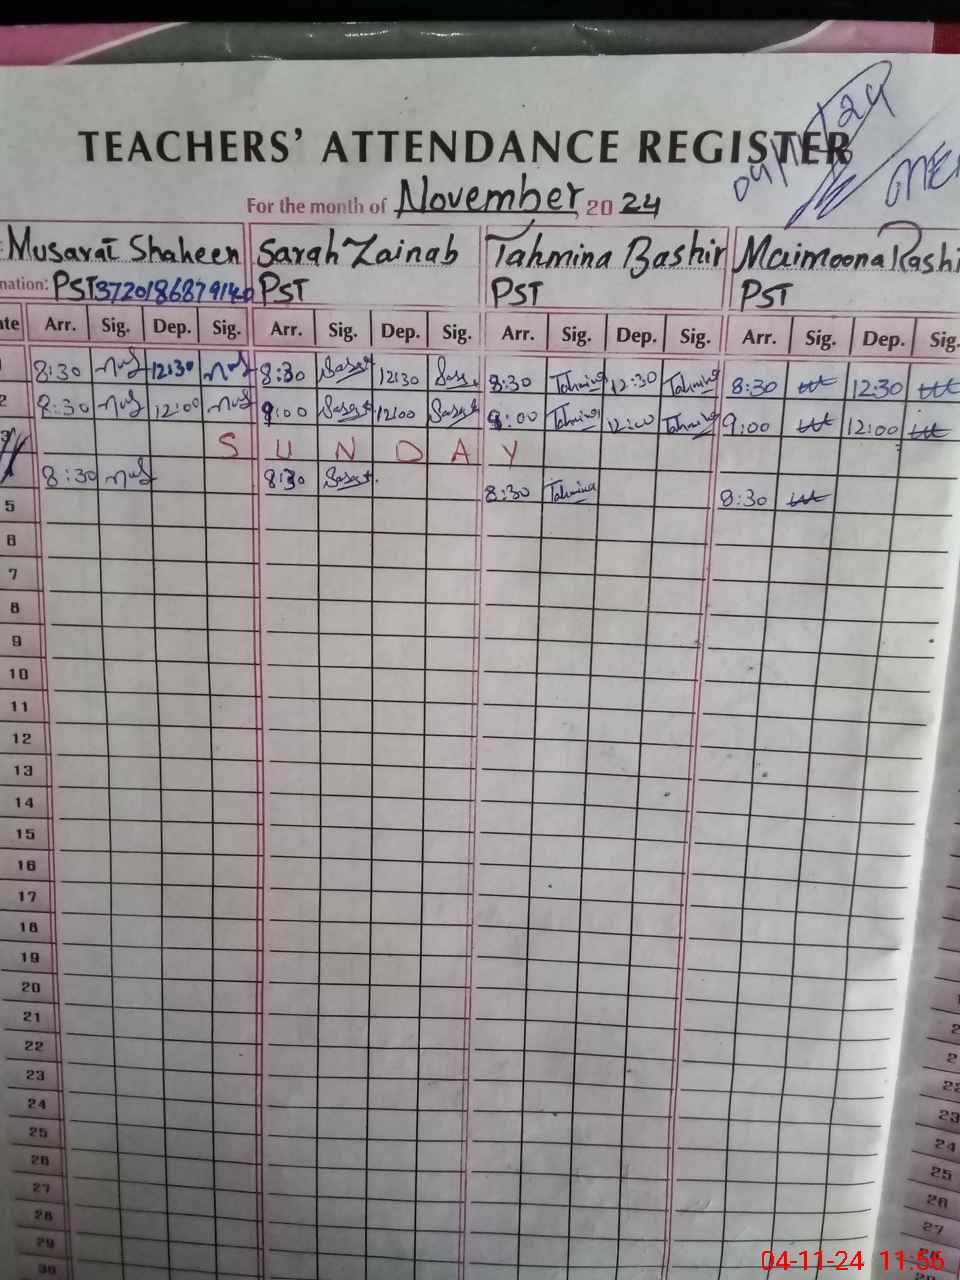 04/11/24
TEACHERS' ATTENDANCE REGISTER
For the month of November, 20 24
Musarat Shaheen Sarah Zainab Tahmina Bashir Maimoona Rashi
nation: PST PST PST PST
ate Arr. Sig. Dep. Sig. Arr. Sig. Dep. Sig. Arr. Sig. Dep. Sig. Arr. Sig. Dep. Sig.
8:30 12:30 8:30 12:30 8:30 Tahmina 12:30 Tahmina 8:30 12:30
2 8:30 12:00 9:00 12:00 9:00 Tahmina 12:00 Tahmina 9:00 12:00
3 S U N D A Y
8:30 8:30 8:30 Tahmina 8:30
5
6
7
8
9
10
11
12
13
14
15
16
17
18
19
20
21
22
23
24
25
26
27
28
29
30
22
23
24
25
26
27
04-11-24 11:56